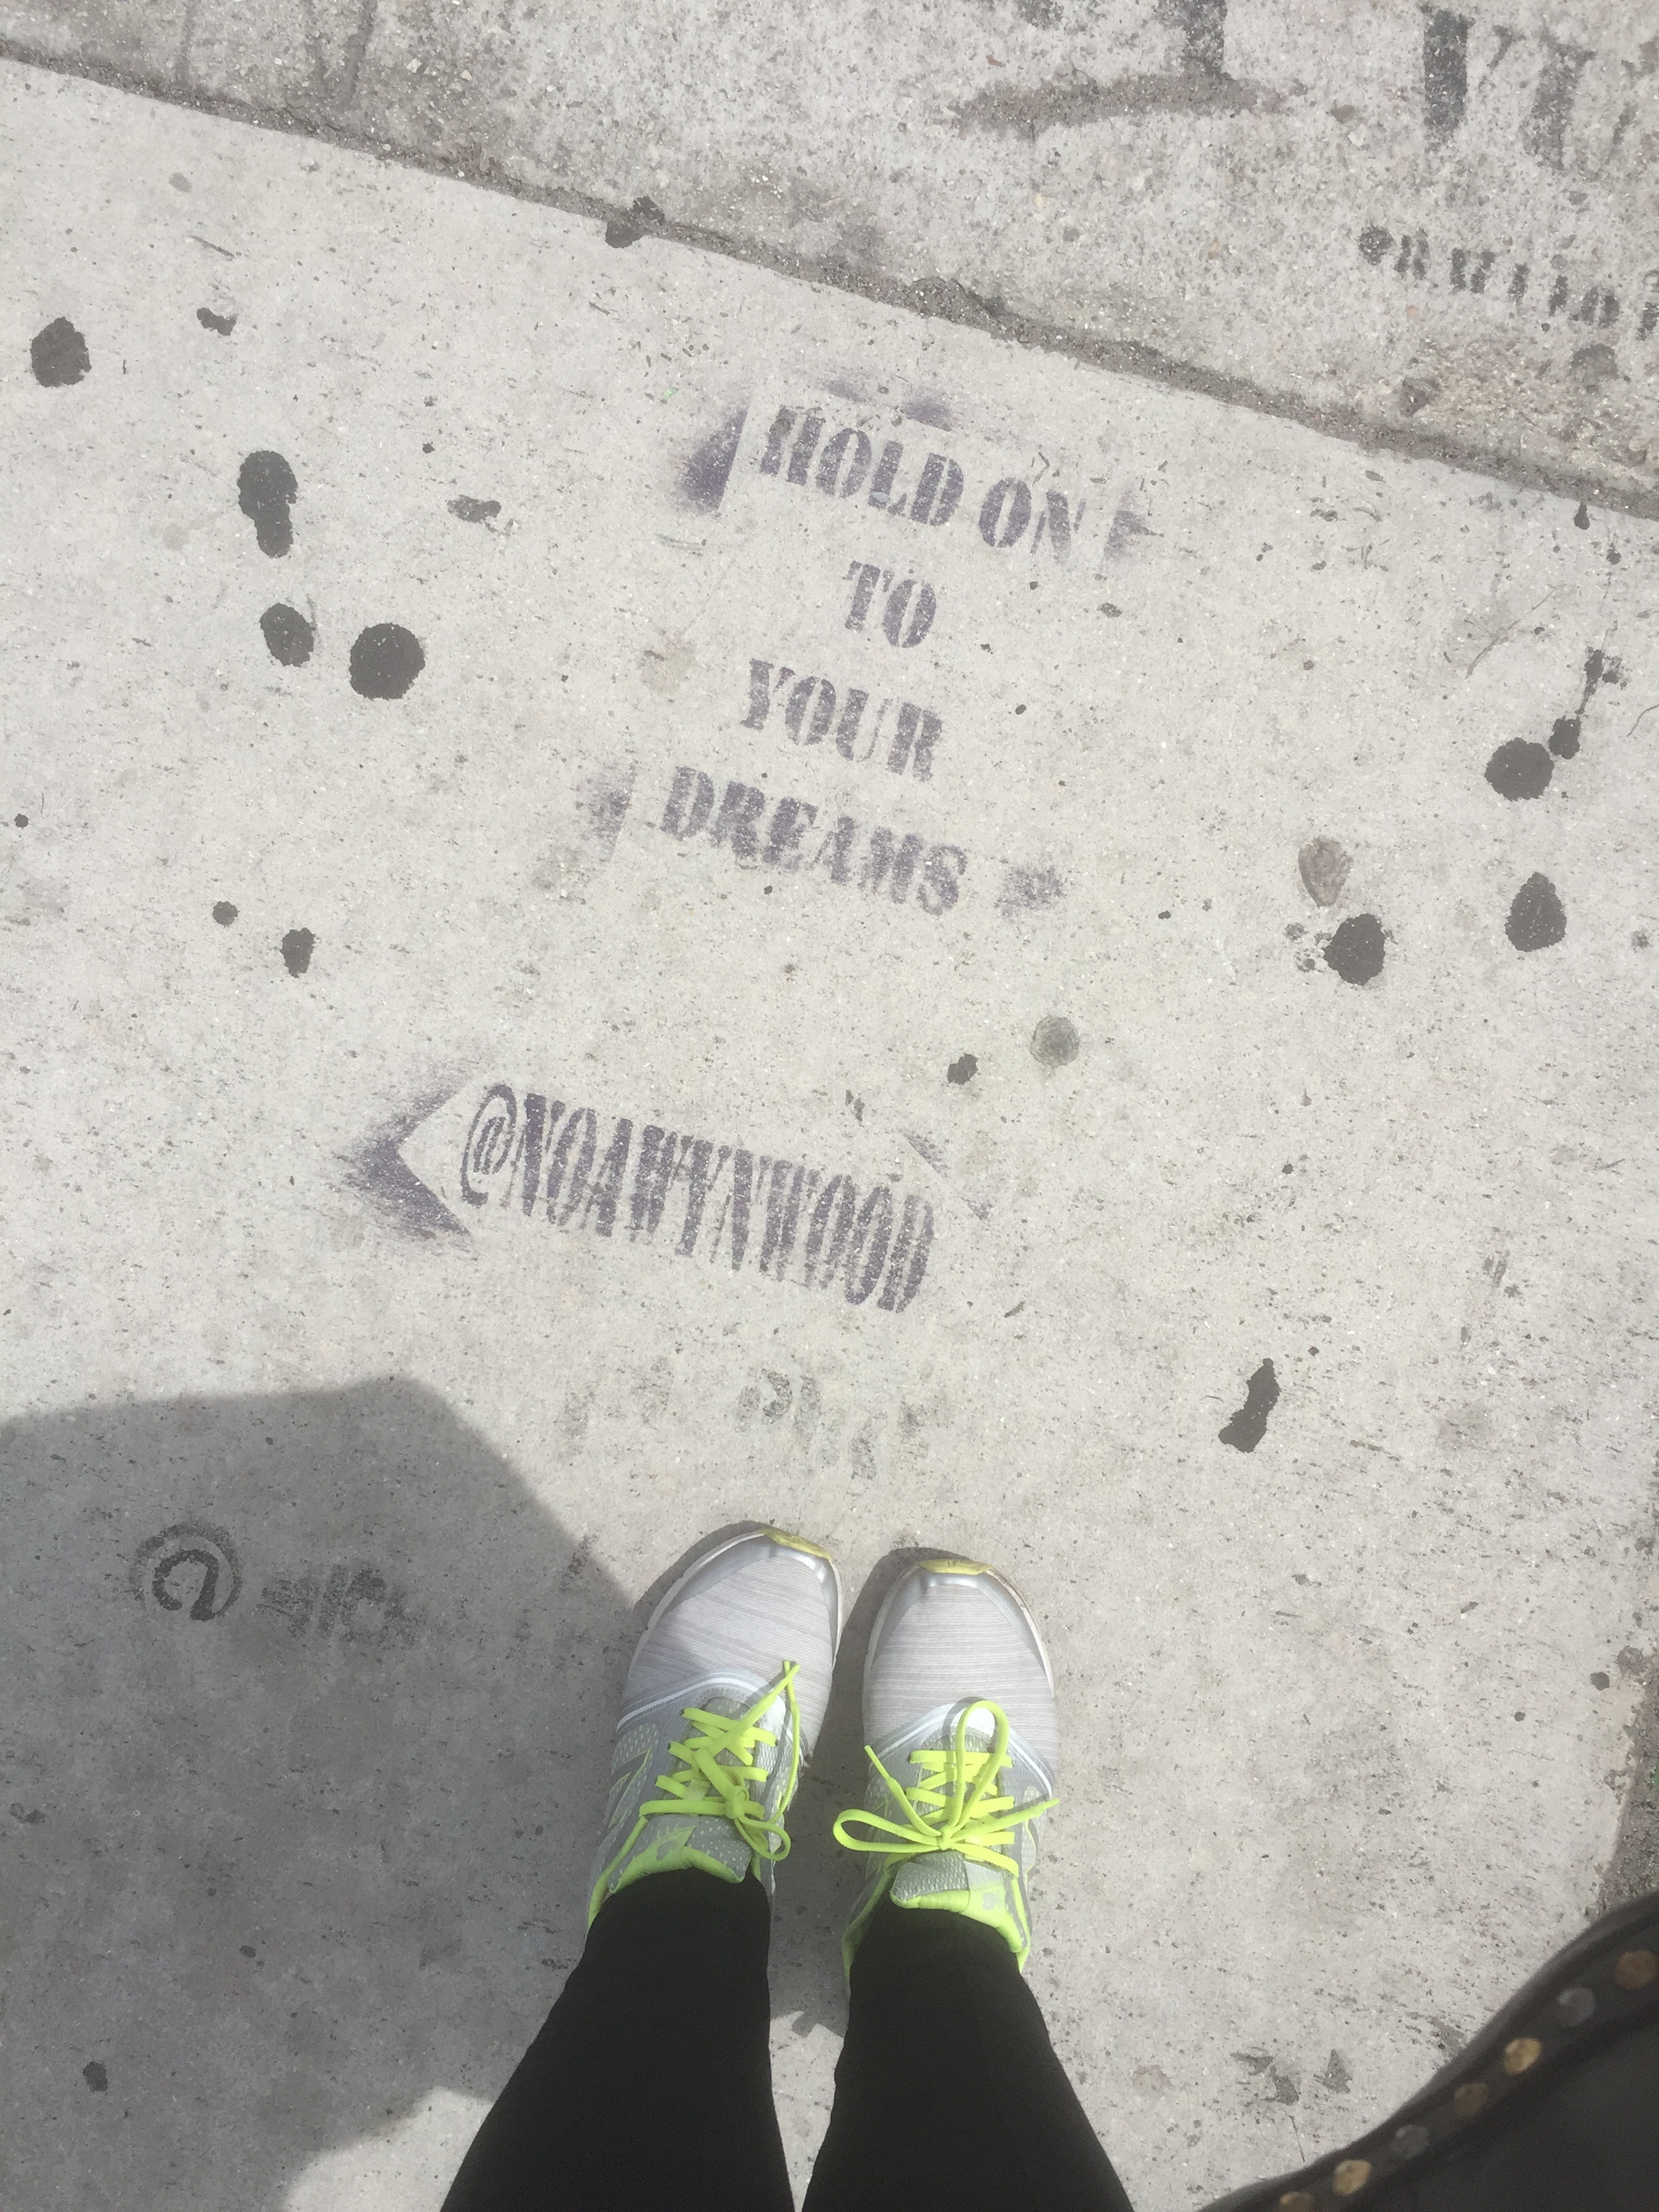 HOLD ON
TO
YOUR
DREAMS
@NOAWYNWOOD